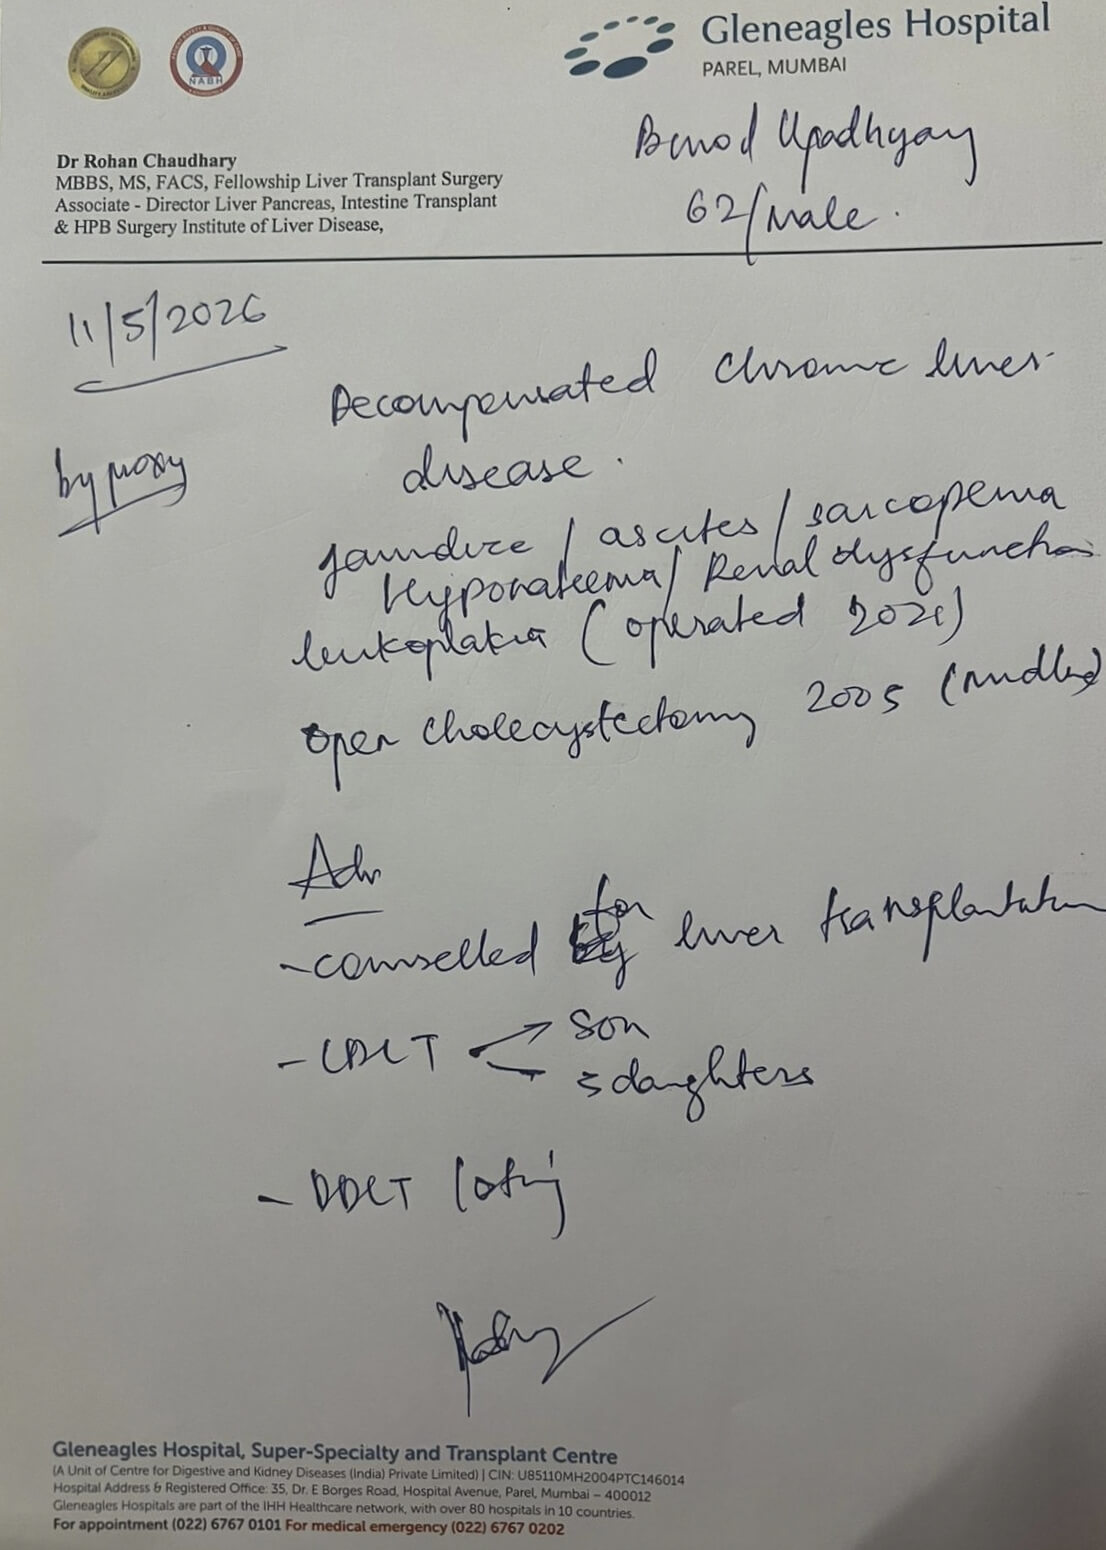 NABH
Gleneagles Hospital
PAREL, MUMBAI
Binod Upadhyay
62/Male.
Dr Rohan Chaudhary
MBBS, MS, FACS, Fellowship Liver Transplant Surgery
Associate - Director Liver Pancreas, Intestine Transplant
& HPB Surgery Institute of Liver Disease,
11/5/2026
by proxy
Decompensated chronic liver
disease.
Jaundice / ascites / sarcopenia
Hyponatremia / Renal dysfunction
leukoplakia (operated 2021)
open cholecystectomy 2005 (midline)
Adv
- counselled for liver transplantation
- LDLT son
3 daughters
- DDLT listing
Gleneagles Hospital, Super-Specialty and Transplant Centre
(A Unit of Centre for Digestive and Kidney Diseases (India) Private Limited) | CIN: U85110MH2004PTC146014
Hospital Address & Registered Office: 35, Dr. E Borges Road, Hospital Avenue, Parel, Mumbai – 400012
Gleneagles Hospitals are part of the IHH Healthcare network, with over 80 hospitals in 10 countries.
For appointment (022) 6767 0101 For medical emergency (022) 6767 0202